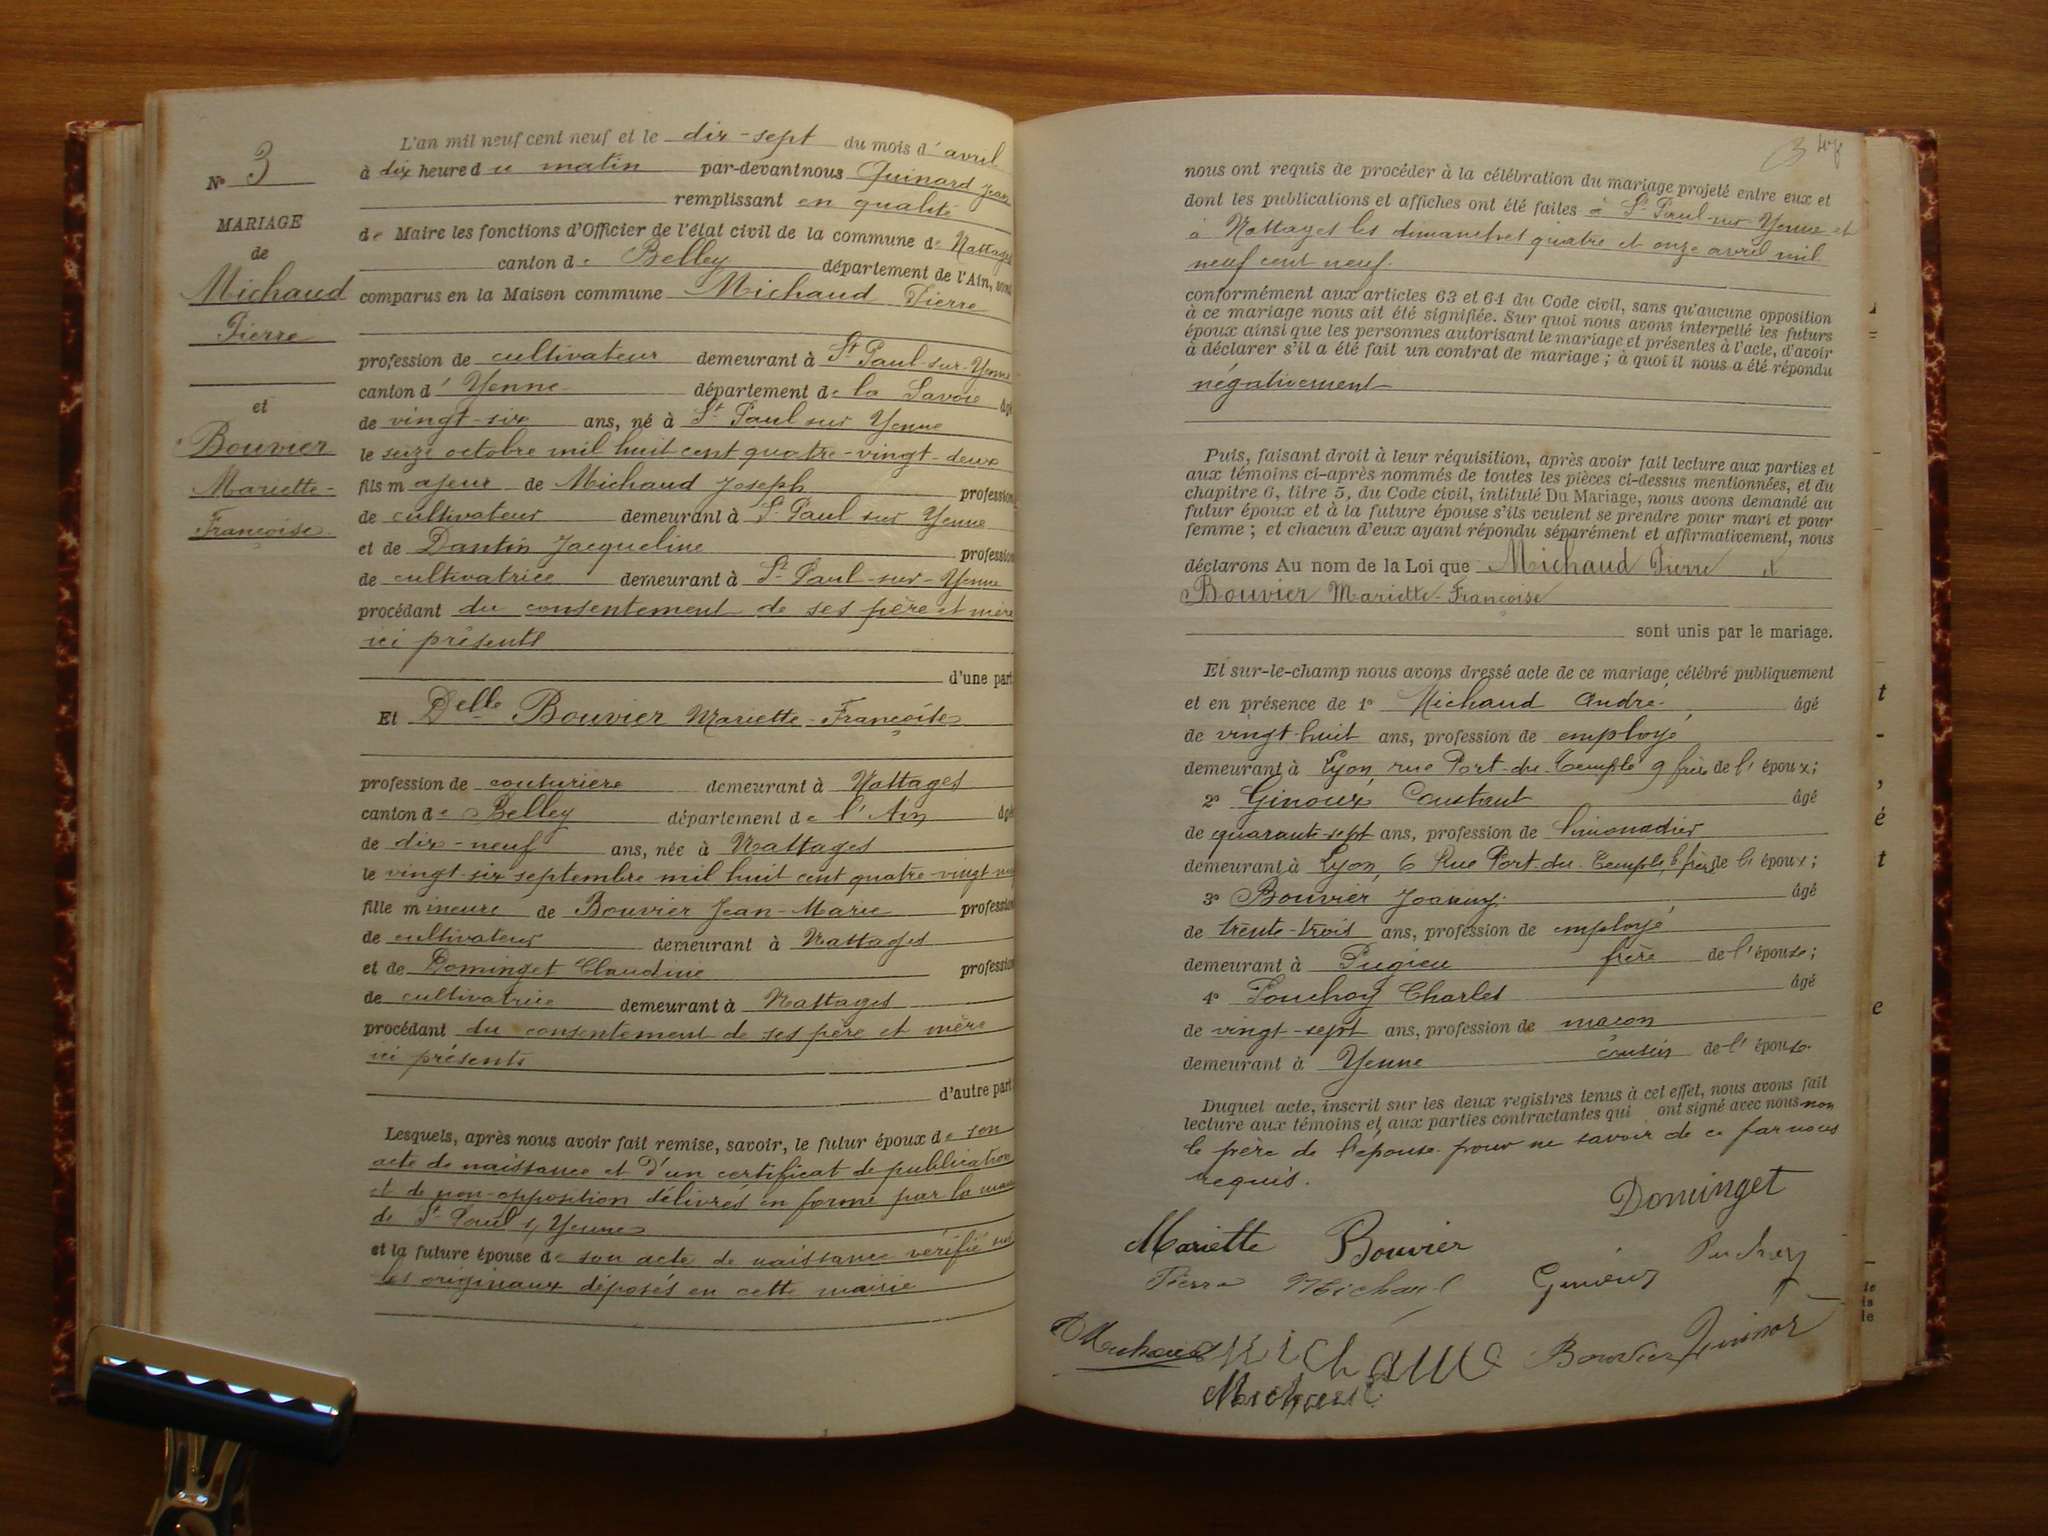 N° 3
MARIAGE
de
Michaud
Pierre
et
Bouvier
Mariette-
Françoise
L'an mil neuf cent neuf et le dix-sept du mois d'avril
à dix heure du matin par-devant nous Guinard Jean
remplissant en qualité
de Maire les fonctions d'Officier de l'état civil de la commune de Nattages
canton de Belley département de l'Ain, sont
comparus en la Maison commune Michaud Pierre
profession de cultivateur demeurant à St Paul-sur-Yenne
canton d'Yenne département de la Savoie âgé
de vingt-six ans, né à St Paul sur Yenne
le seize octobre mil huit cent quatre-vingt-deux
fils majeur de Michaud Joseph profession
de cultivateur demeurant à St Paul sur Yenne
et de Dantin Jacqueline profession
de cultivatrice demeurant à St Paul-sur-Yenne
procédant du consentement de ses père et mère
ici présents
d'une part
Et Delle Bouvier Mariette-Françoise
profession de couturière demeurant à Nattages
canton de Belley département de l'Ain âgée
de dix-neuf ans, née à Nattages
le vingt-six septembre mil huit cent quatre-vingt-neuf
fille mineure de Bouvier Jean-Marie profession
de cultivateur demeurant à Nattages
et de Dominget Claudine profession
de cultivatrice demeurant à Nattages
procédant du consentement de ses père et mère
ici présents
d'autre part
Lesquels, après nous avoir fait remise, savoir, le futur époux de son
acte de naissance et d'un certificat de publication
et de non-opposition délivrés en forme par la mairie
de St Paul s/ Yenne
et la future épouse de son acte de naissance vérifié sur
les originaux déposés en cette mairie
3
nous ont requis de procéder à la célébration du mariage projeté entre eux et
dont les publications et affiches ont été faites à St Paul-sur-Yenne et
à Nattages les dimanches quatre et onze avril mil
neuf cent neuf.
conformément aux articles 63 et 64 du Code civil, sans qu'aucune opposition
à ce mariage nous ait été signifiée. Sur quoi nous avons interpellé les futurs
époux ainsi que les personnes autorisant le mariage et présentes à l'acte, d'avoir
à déclarer s'il a été fait un contrat de mariage ; à quoi il nous a été répondu
négativement
Puis, faisant droit à leur réquisition, après avoir fait lecture aux parties et
aux témoins ci-après nommés de toutes les pièces ci-dessus mentionnées, et du
chapitre 6, titre 5, du Code civil, intitulé Du Mariage, nous avons demandé au
futur époux et à la future épouse s'ils veulent se prendre pour mari et pour
femme ; et chacun d'eux ayant répondu séparément et affirmativement, nous
déclarons Au nom de la Loi que Michaud Pierre et
Bouvier Mariette-Françoise
sont unis par le mariage.
Et sur-le-champ nous avons dressé acte de ce mariage célébré publiquement
et en présence de 1° Michaud André âgé
de vingt-huit ans, profession de employé
demeurant à Lyon, rue Port-du-Temple 9 frère de l'époux ;
2° Ginoux Constant âgé
de quarant-sept ans, profession de limonadier
demeurant à Lyon, 6 Rue Port-du-Temple, b. frère de l'époux ;
3° Bouvier Joanny âgé
de trente-trois ans, profession de employé
demeurant à Pugieu frère de l'épouse ;
4° Charles âgé
de vingt-sept ans, profession de maçon
demeurant à Yenne cousin de l'épouse
Duquel acte, inscrit sur les deux registres tenus à cet effet, nous avons fait
lecture aux témoins et aux parties contractantes qui ont signé avec nous non
le père de l'épouse pour ne savoir de ce par nous
requis.
Dominget
Mariette Bouvier
Pierre Michaud
Michaud Michaud Bouvier
Michaud